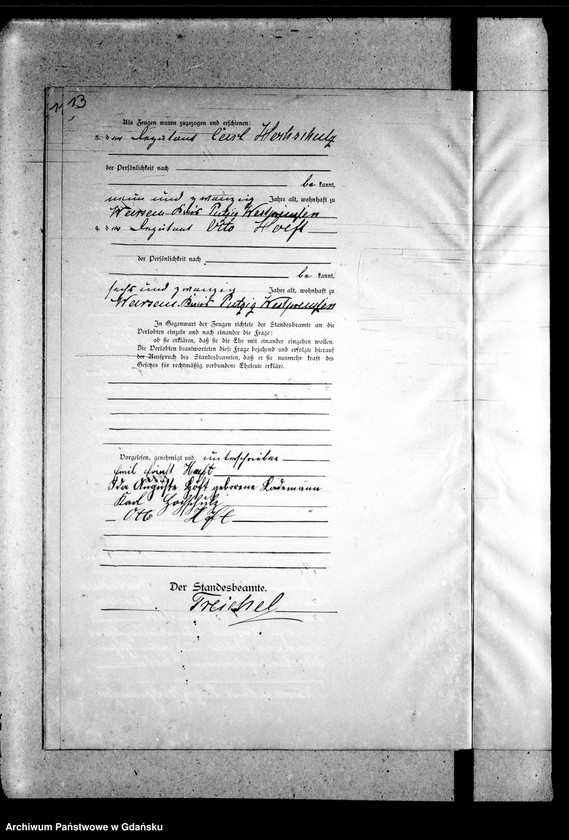 13
Als Zeugen waren zugezogen und erschienen:
3. der Carl Hochschulz
der Persönlichkeit nach
be kannt,
neun und zwanzig Jahre alt, wohnhaft zu
Kreis Putzig Westpreußen
4. der Otto Hoeft
der Persönlichkeit nach
be kannt,
sechs und zwanzig Jahre alt, wohnhaft zu
Kreis Putzig Westpreußen
In Gegenwart der Zeugen richtete der Standesbeamte an die
Verlobten einzeln und nach einander die Frage:
ob sie erklären, daß sie die Ehe mit einander eingehen wollen.
Die Verlobten beantworteten diese Frage bejahend und erfolgte hierauf
der Ausspruch des Standesbeamten, daß er sie nunmehr kraft des
Gesetzes für rechtmäßig verbundene Eheleute erkläre.
Vorgelesen, genehmigt und unterschrieben
Emil Ernst Hoeft
Ida Auguste Höft geborene Lademann
Karl Hochschulz
Otto Höft
Der Standesbeamte.
Treichel
Archiwum Państwowe w Gdańsku